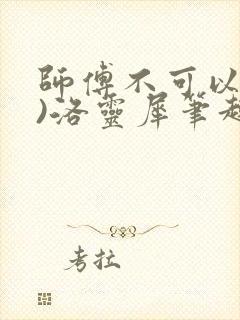 師傅不可以
)洛靈犀筆趣
考拉